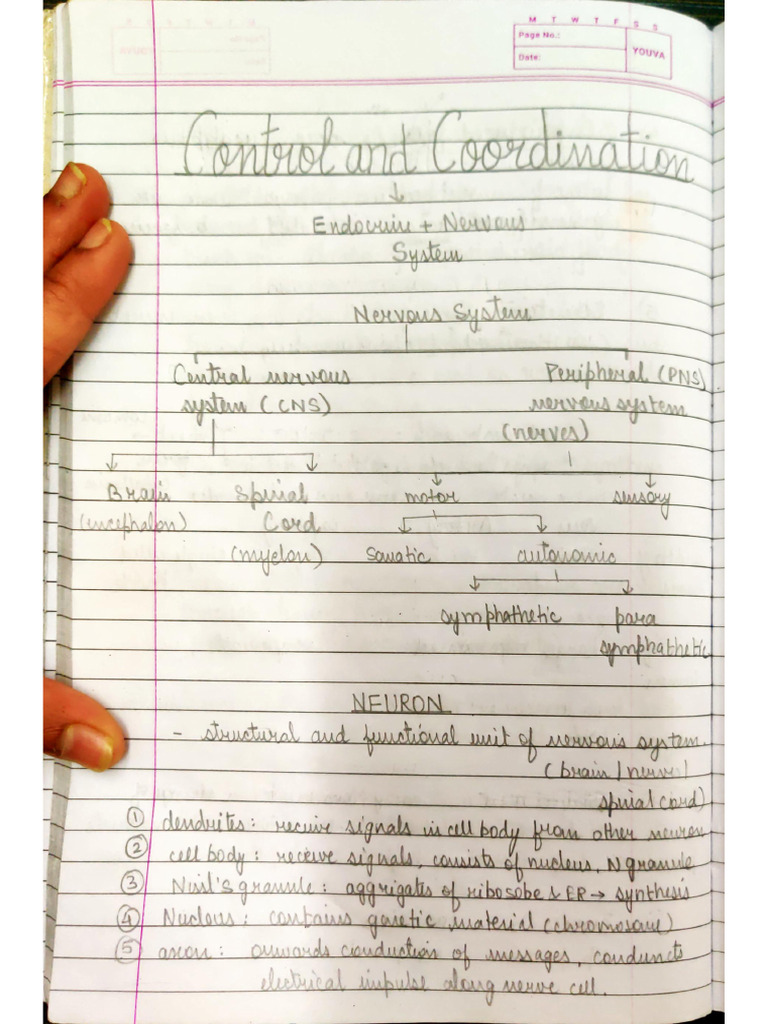 M T W T F S S
Page No.:
Date:
YOUVA
Control and Coordination
Endocrine + Nervous
System
Nervous System
Central nervous
system (CNS)
Peripheral (PNS)
nervous system
(nerves)
Brain
(encephalon)
Spinal
Cord
(myelon)
motor
sensory
somatic
autonomic
symphathetic
para
symphathetic
NEURON
- structural and functional unit of nervous system.
(brain/nerve/
spinal cord)
① dendrites: receive signals in cell body from other neuron
② cell body: receive signals, consists of nucleus, N granule
③ Nissl's granule: aggrigates of ribosobe & ER → synthesis
④ Nucleus: contains genetic material (chromosome)
⑤ axon: onwards conduction of messages, conduncts
electrical impulse along nerve cell.